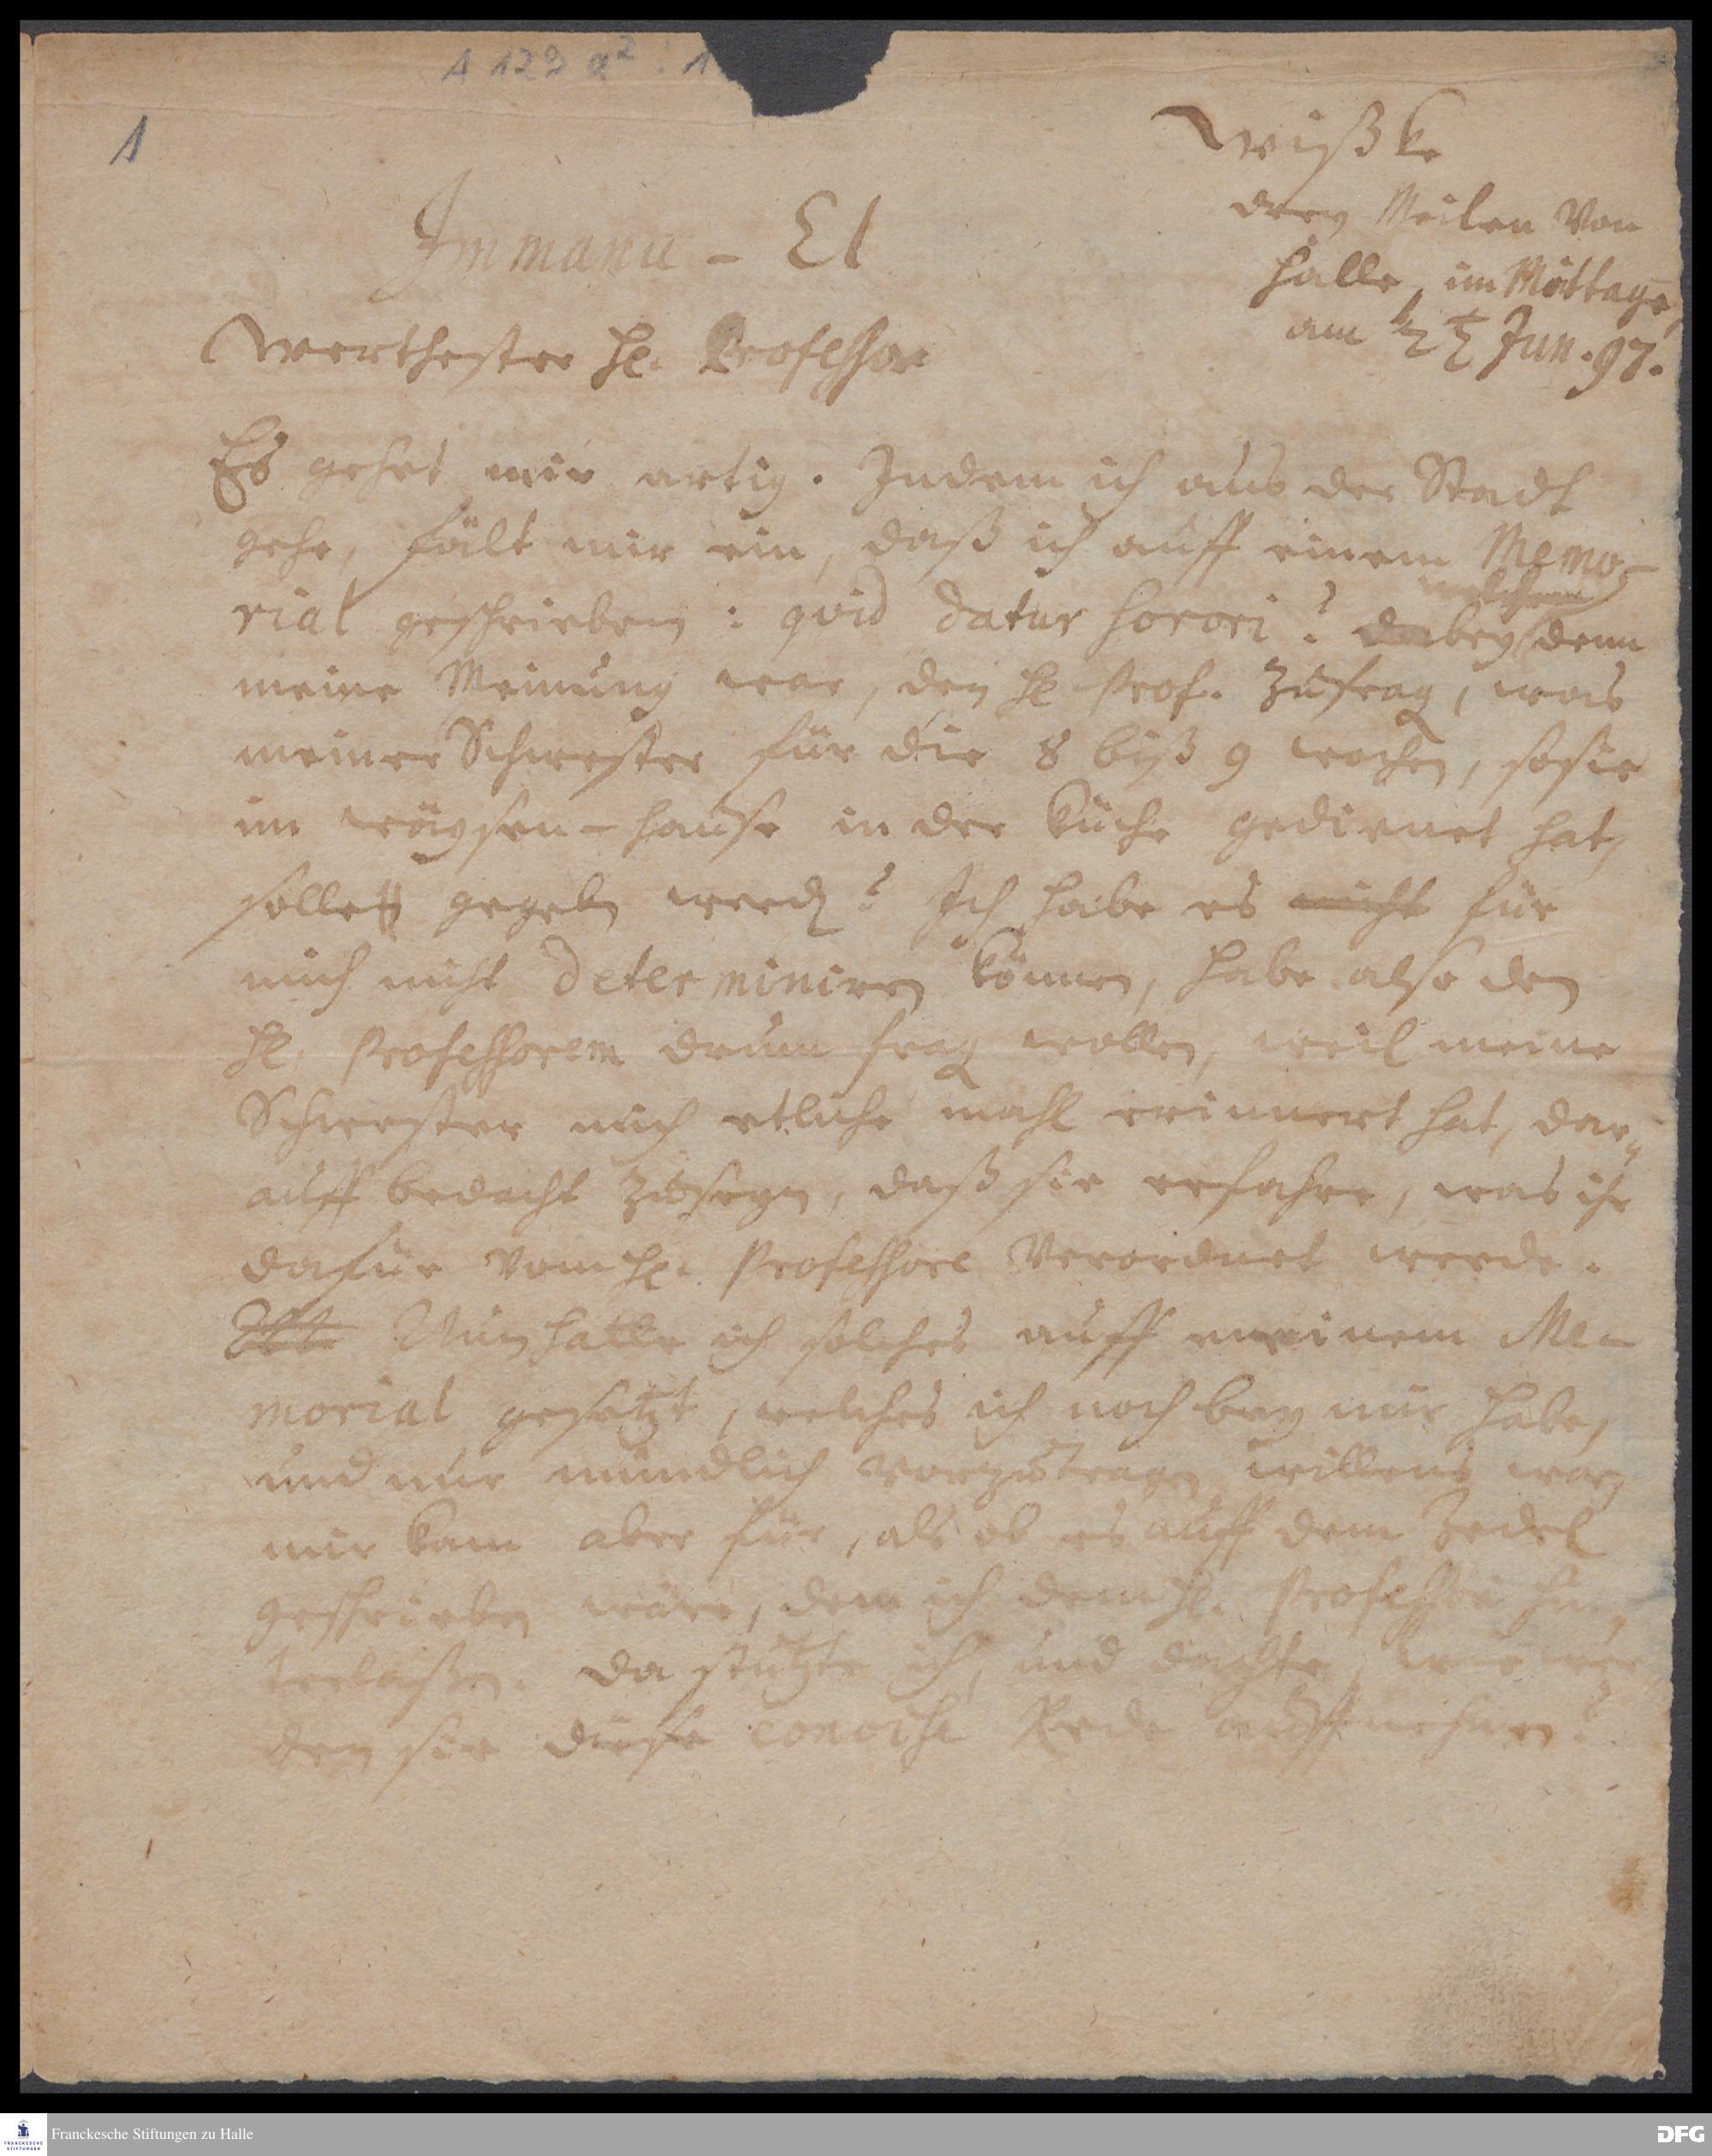 A 129 a2 : 1
1
Wißke
drey Meilen von
Halle, im Mittage,
am Jun. 97.
Immanu - El
Werthester H. Professor
Es gehet mir artig. Indem ich aus der Stadt
gehe, fält mir ein, daß ich auff einem Memo-
rial geschrieben: qvid datur sorori? bey welchem denn
meine Meinung war, den H. Prof. zufragen, was
meiner Schwester für die 8 biß 9 wochen, so sie
im wäysen-hause in der Küche gedienet hat,
solle gegeben werden? Ich habe es nicht für
mich nicht determiniren können, habe also den
H. Professorem drum fragen wollen, weil meine
Schwester mich etliche mahl erinnert hat, dar-
auff bedacht zuseyn, daß sie erfahre, was ihr
dafür vom H. Professore verordnet werde.
Nun hatte ich solches auff meinem Me-
morial gesetzt, welches ich noch bey mir habe,
und nur mündlich vorzutragen willens war,
mir kam aber für, als ob es auff dem Zedel
geschrieben wäre, den ich dem H. Professori hin-
terlaßen. Da stutzte ich, und dachte, wie wer-
den sie diese Rede auffnehmen?
Franckesche Stiftungen zu Halle
FRANCKESCHE STIFTUNGEN
DFG